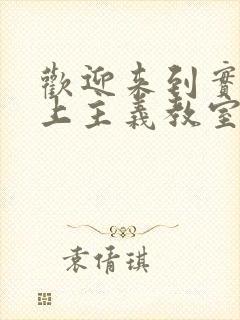 歡迎來到實
上主義教室
袁倩琪